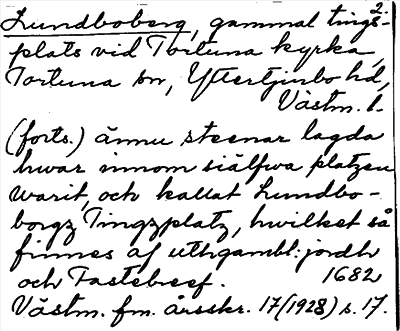 2.
Lundboberg, gammal tings-
plats vid Tortuna kyrka,
Tortuna sn, Yttertjurbo hd,
Västm. l.
(forts.) ännu steenar lagda
hwar innom siälfwa platzen
warit, och kallat Lundbo-
borgz Tingzplatz, hwilket så
finnes af uthgambl: jordh
och Fastebreef. 1682
Västm. fm. årsskr. 17(1928) s. 17.